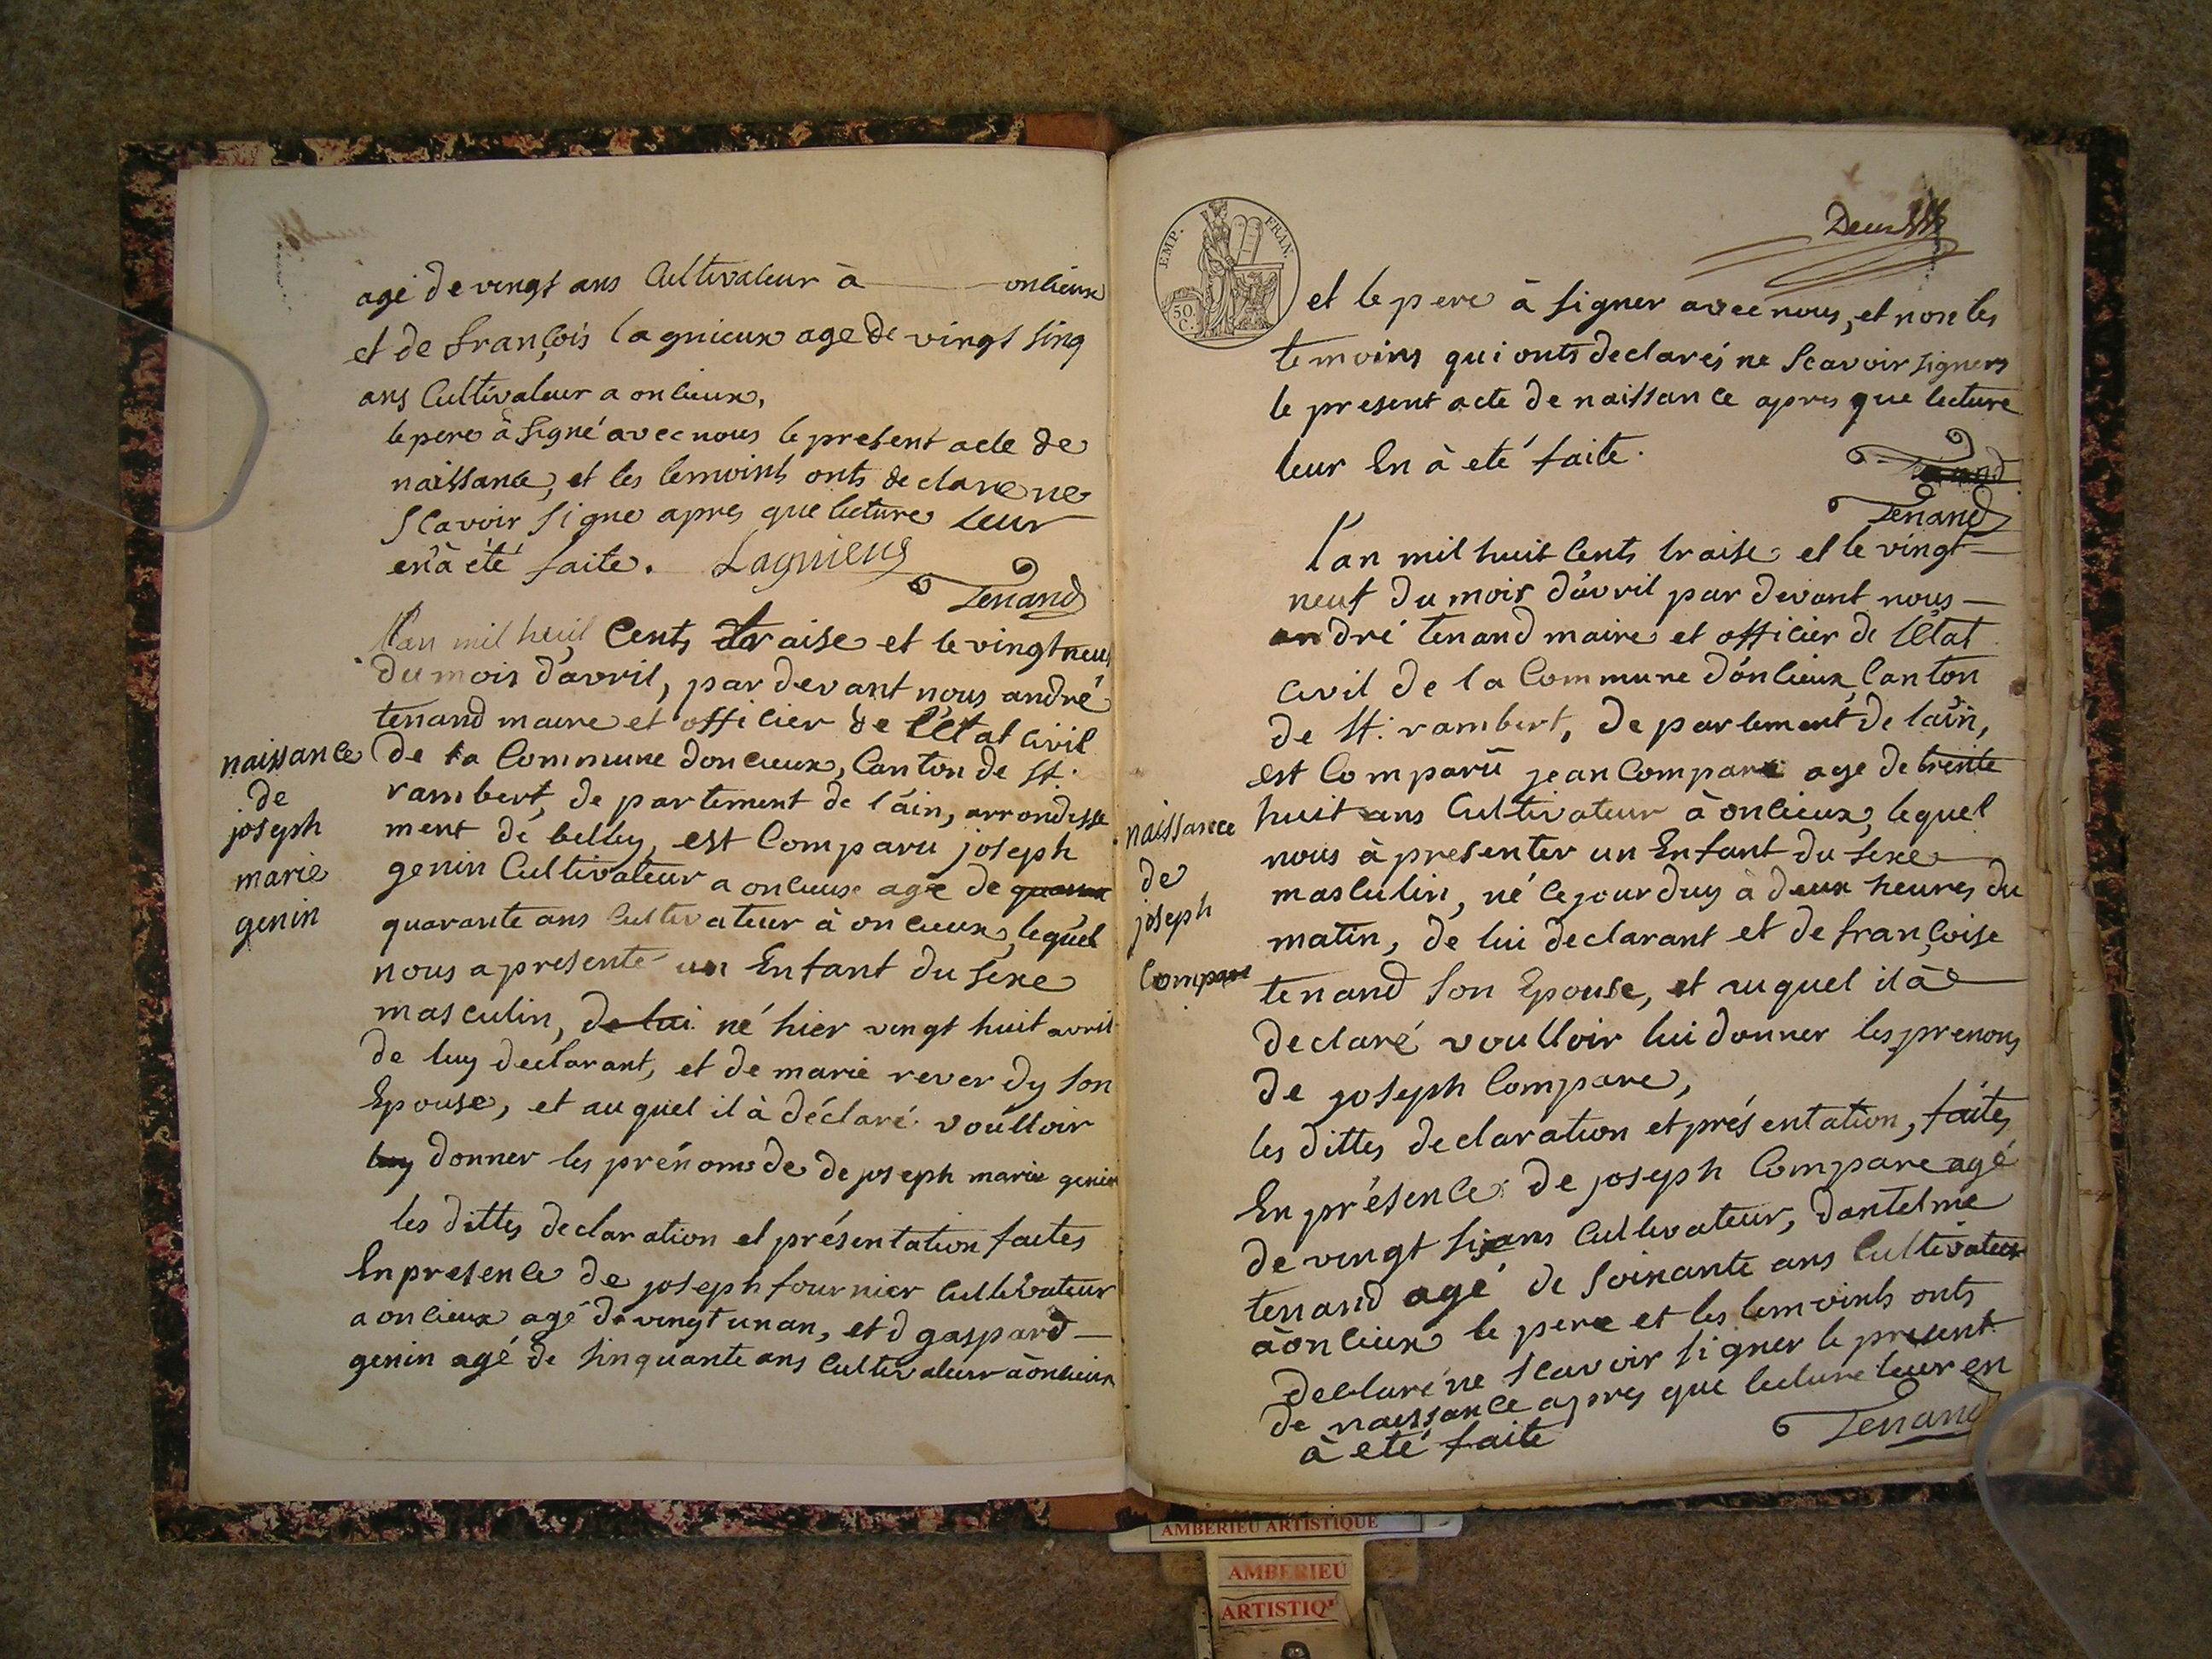 agé de vingt ans Cultivateur à onlieux
et de françois lagnieux age de vingt sinq
ans Cultivateur a onlieux,
le pere à signé avec nous le present acte de
naissance, et les temoints onts declare ne
scavoir signe apres que lecture leur
en à été faite. Lagnieus
Tenand
naissance
de
joseph
marie
genin
l'an mil heuil Cents traise et le vingt neuf
du mois d'avril, par devant nous andré
tenand maire et officier de l'état civil
de la Commune donlieux, Canton de St.
rambert, de partement de l'ain, arrondisse
ment de belley, est Comparu joseph
genin Cultivateur a onlieux agé de
quarante ans Cultivateur à onlieux, lequel
nous a presenté un Enfant du sexe
masculin, de lui né hier vingt huit avril
de luy declarant, et de marie reverdy son
Epouse, et auquel il à déclaré voulloir
luy donner les prénoms de de joseph marie genin
les dittes declaration et présentation faites
En presence de joseph fournier Cultivateur
a onlieux agé de vingt un an, et d gaspard
genin agé de sinquante ans Cultivateur à onlieux
EMP. FRAN.
50 C.
et le pere à signer avec nous, et non les
temoins qui onts declarés ne scavoir signers
le present acte de naissance apres que lecture
leur En à eté faite.
Tenand
Tenand
naissance
de
joseph
Compare
l'an mil huit Cents traise et le vingt
neuf du mois d'avril par devant nous
andré tenand maire et officier de l'état
civil de la Commune d'onlieux, Canton
de St. rambert, de partement de l'ain,
est Comparu jean Compare age de trente
huit ans Cultivateur à onlieux, lequel
nous à presenter un Enfant du sexe
masculin, né cejourduy à deux heures du
matin, de lui declarant et de françoise
tenand son Epouse, et auquel il à
declaré voulloir lui donner les prenons
de joseph Compare,
les dittes declaration et présentation, faites
En présence de joseph Compare agé
de vingt six ans Cultivateur, dantelme
tenand agé de soixante ans Cultivateur
à onlieux le pere et les temoints onts
declaré ne scavoir signer le present
de naissance apres que lecture leur en
à eté faite
Tenand
AMBERIEU ARTISTIQUE
AMBERIEU
ARTISTIQ'